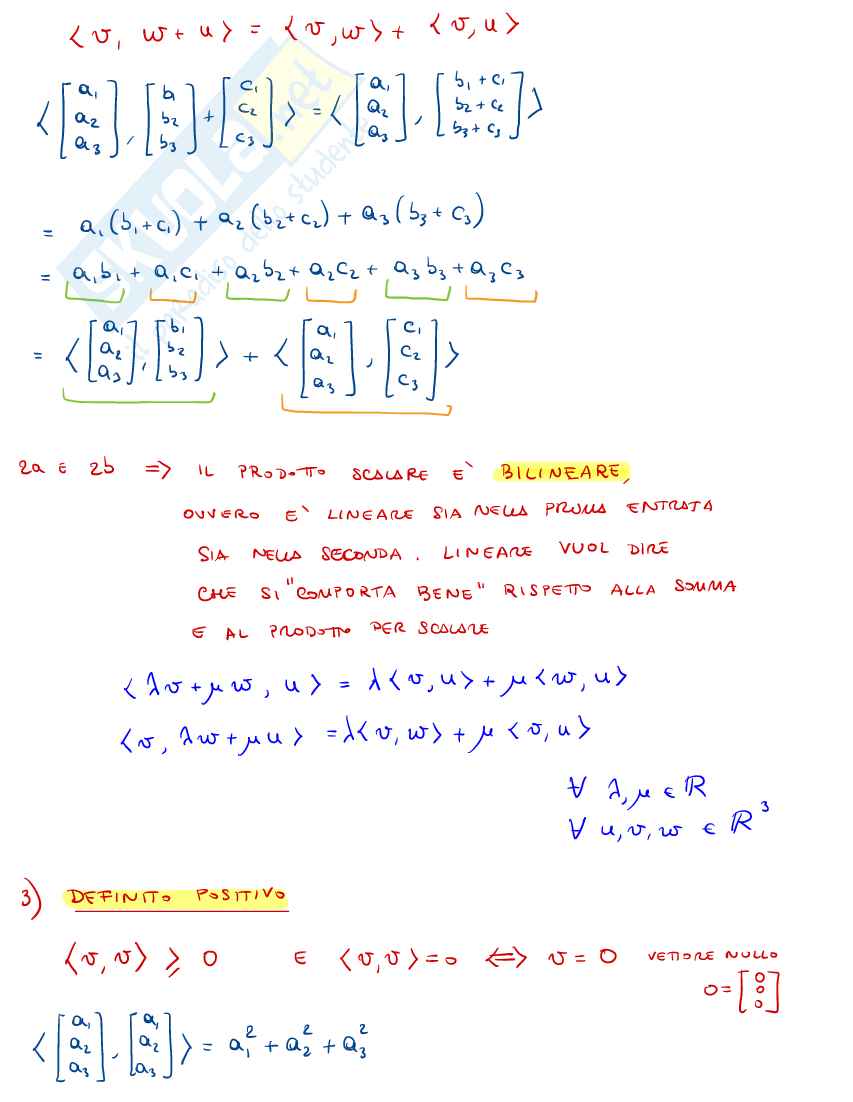 ⟨v, w+u⟩ = ⟨v,w⟩ + ⟨v,u⟩
⟨[a₁ a₂ a₃], [b₁ b₂ b₃] + [c₁ c₂ c₃]⟩ = ⟨[a₁ a₂ a₃], [b₁+c₁ b₂+c₂ b₃+c₃]⟩
= a₁(b₁+c₁) + a₂(b₂+c₂) + a₃(b₃+c₃)
= a₁b₁ + a₁c₁ + a₂b₂ + a₂c₂ + a₃b₃ + a₃c₃
= ⟨[a₁ a₂ a₃], [b₁ b₂ b₃]⟩ + ⟨[a₁ a₂ a₃], [c₁ c₂ c₃]⟩
2a E 2b ⇒ IL PRODOTTO SCALARE E` BILINEARE,
OVVERO E` LINEARE SIA NELLA PRIMA ENTRATA
SIA NELLA SECONDA. LINEARE VUOL DIRE
CHE SI "COMPORTA BENE" RISPETTO ALLA SOMMA
E AL PRODOTTO PER SCALARE
⟨λv+μw, u⟩ = λ⟨v,u⟩ + μ⟨w,u⟩
⟨v, λw+μu⟩ = λ⟨v,w⟩ + μ⟨v,u⟩
∀ λ,μ ∈ ℝ
∀ u,v,w ∈ ℝ³
3) DEFINITO POSITIVO
⟨v,v⟩ ≥ 0 E ⟨v,v⟩=0 ⇔ v=0 VETTORE NULLO
0=[0 0 0]
⟨[a₁ a₂ a₃], [a₁ a₂ a₃]⟩ = a₁² + a₂² + a₃²
SKUOLA.net
il paradiso dello studente